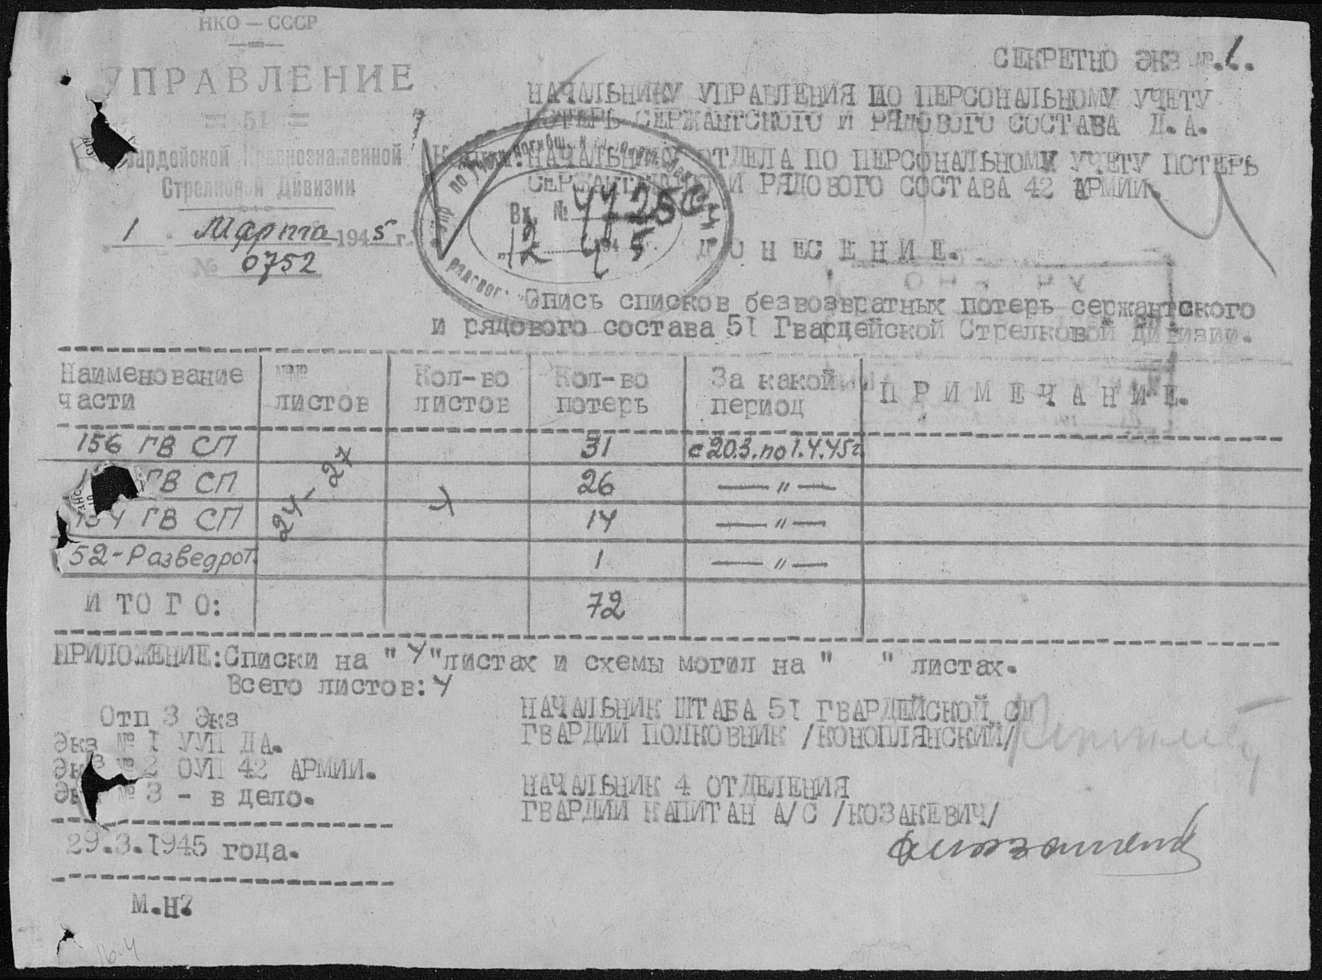 НКО — СССР
УПРАВЛЕНИЕ
= 51 =
Гвардейской Краснознаменной
Стрелковой Дивизии
1 Марта 1945 г.
№ 0752
СЕКРЕТНО экз №.1.
НАЧАЛЬНИКУ УПРАВЛЕНИЯ ПО ПЕРСОНАЛЬНОМУ УЧЕТУ
ПОТЕРЬ СЕРЖАНТСКОГО И РЯДОВОГО СОСТАВА Д.А.
НАЧАЛЬНИКУ ОТДЕЛА ПО ПЕРСОНАЛЬНОМУ УЧЕТУ ПОТЕРЬ
СЕРЖАНТСКОГО И РЯДОВОГО СОСТАВА 42 АРМИИ.
Вх. №
12 4 1945
ДОНЕСЕНИЕ.
Опись списков безвозвратных потерь сержантского
и рядового состава 51 Гвардейской Стрелковой Дивизии.
Наименование части №№ листов Кол-во листов Кол-во потерь За какой период ПРИМЕЧАНИЕ.
156 ГВ СП 24-27 4 31 с 20.3. по 1.4.45г
ГВ СП 26 — " —
154 ГВ СП 14 — " —
52-Разведрот. 1 — " —
ИТОГО: 72
ПРИЛОЖЕНИЕ: Списки на "4" листах и схемы могил на " " листах.
Всего листов: 4
Отп 3 Экз
Экз № 1 УУП ДА.
Экз № 2 ОУП 42 АРМИИ.
Экз № 3 - в дело.
29.3.1945 года.
М.Н?
НАЧАЛЬНИК ШТАБА 51 ГВАРДЕЙСКОЙ СД
ГВАРДИИ ПОЛКОВНИК /КОНОПЛЯНСКИЙ/
НАЧАЛЬНИК 4 ОТДЕЛЕНИЯ
ГВАРДИИ КАПИТАН А/С /КОЗАКЕВИЧ/
16.4